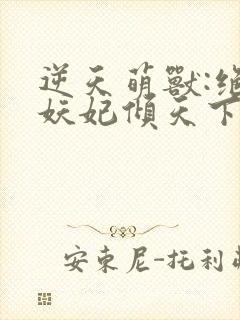 逆天萌獸:绝
妖妃傾天下
安東尼-托利